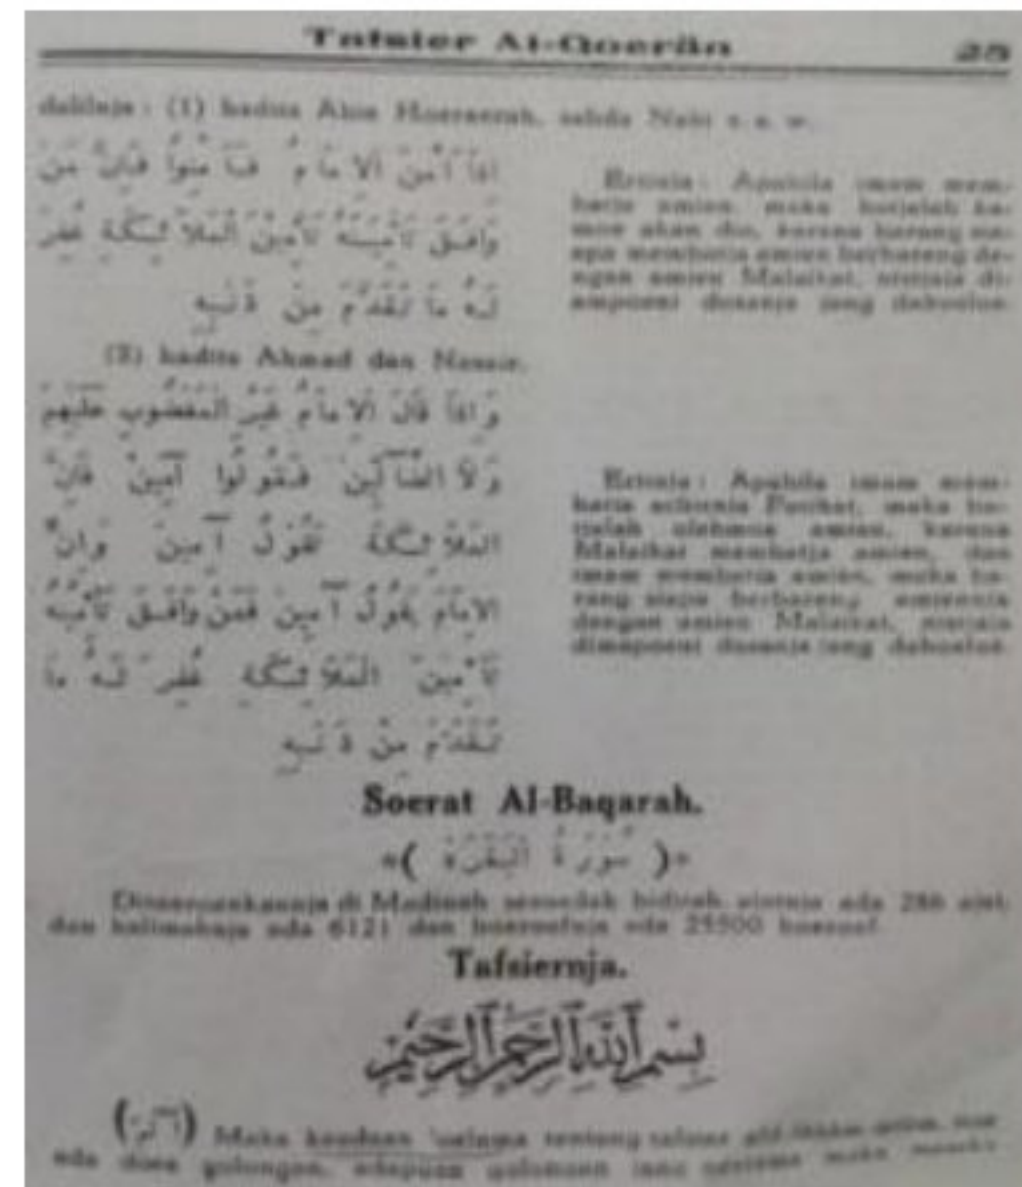 Tafsier Al-Qoerän 25
(1) hadits Aboe Hoeraerah, sabda Nabi s. a. w.
اِذَا اَمَّنَ الْاِمَامُ فَاَمِّنُوْا فَاِنَّ مَنْ
وَافَقَ تَأْمِيْنُهُ تَأْمِيْنَ الْمَلَائِكَةِ غُفِرَ
لَهُ مَا تَقَدَّمَ مِنْ ذَنْبِهِ
Ertinja : Apabila imam mem-
batja amien, maka
akan dia, karena barang sia-
apa membatja amien berbareng de-
ngan amien Malaikat, nistjaja di-
ampoeni dosanja jang dahoeloe.
(2) hadits Ahmad dan Nasair.
وَاِذَا قَالَ الْاِمَامُ غَيْرِ الْمَغْضُوْبِ عَلَيْهِمْ
وَلَا الضَّآلِّيْنَ فَقُوْلُوْا آمِيْنَ فَاِنَّ
الْمَلَائِكَةَ تَقُوْلُ آمِيْنَ وَاِنَّ
الْاِمَامَ يَقُوْلُ آمِيْنَ فَمَنْ وَافَقَ تَأْمِيْنُهُ
تَأْمِيْنَ الْمَلَائِكَةِ غُفِرَ لَهُ مَا
تَقَدَّمَ مِنْ ذَنْبِهِ
Ertinja : Apabila imam mem-
batja achirnja Fatihat, maka ba-
tjalah olehmoe amien, karena
Malaikat membatja amien, dan
imam membatja amien, maka ba-
rang siapa berbareng amiennja
dengan amien Malaikat, nistjaja
dimapoeni dosanja jang dahoeloe.
Soerat Al-Baqarah.
( سُوْرَةُ الْبَقَرَةِ )
di Madinah sesoedah hidjrah, ajatnja ada 286 ajat,
dan kalimahnja ada 6121 dan hoeroefnja ada 25500 hoeroef.
Tafsiernja.
بِسْمِ اللّٰهِ الرَّحْمٰنِ الرَّحِيْمِ
(الٓمٓ) Maka keadaan 'oelama tentang tafsier
ada doea golongan, adapoen golongan jang pertama maka mereka